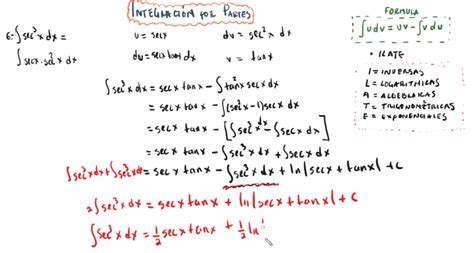 INTEGRACIÓN POR PARTES
FORMULA
∫udv = uv - ∫vdu
• ILATE
I = INVERSAS
L = LOGARITMICAS
A = ALGEBRAICAS
T = TRIGONOMÉTRICAS
E = EXPONENCIALES
∫sec³x dx =
u = secx
dv = sec²x dx
∫secx·sec²x dx
du = secx tanx dx
v = tanx
∫sec³x dx = secx tanx - ∫tan²x secx dx
= secx tanx - ∫(sec²x-1)secx dx
= secx tanx - [∫sec³x dx - ∫secx dx]
= secx tanx - ∫sec³x dx + ∫secx dx
∫sec³x dx + ∫sec³x dx = secx tanx - ∫sec³x dx + ln|secx + tanx| + c
2∫sec³x dx = secx tanx + ln|secx + tanx| + c
∫sec³x dx = 1/2 secx tanx + 1/2 ln